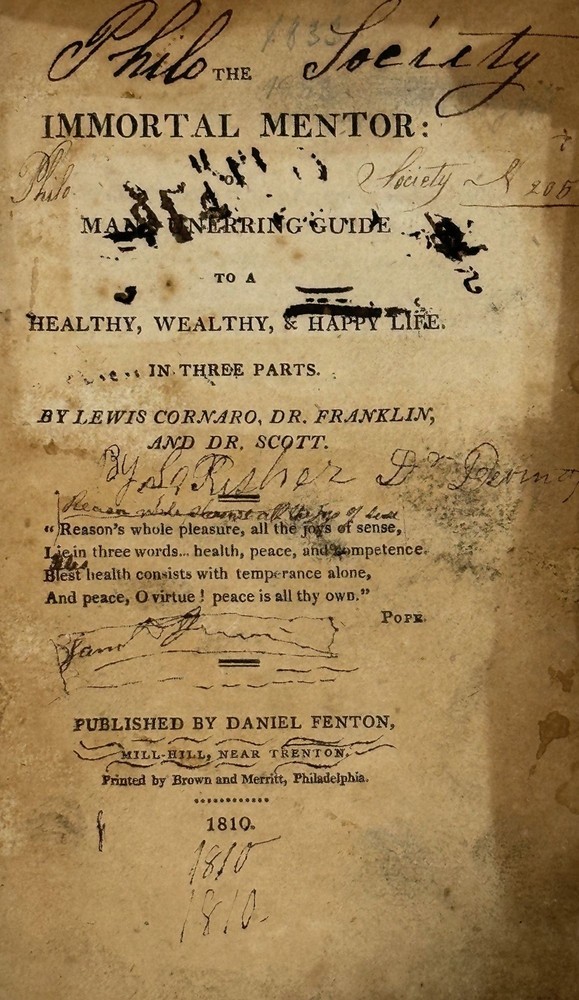 Philo Society
1833
THE
IMMORTAL MENTOR:
Philo Society № 205
OR
MAN'S UNERRING GUIDE
TO A
HEALTHY, WEALTHY, & HAPPY LIFE.
IN THREE PARTS.
BY LEWIS CORNARO, DR. FRANKLIN,
AND DR. SCOTT.
By
Reason all the joys of
“Reason's whole pleasure, all the joys of sense,
Lie in three words... health, peace, and competence.
Blest health consists with temperance alone,
And peace, O virtue! peace is all thy own.”
POPE.
PUBLISHED BY DANIEL FENTON,
MILL-HILL, NEAR TRENTON.
Printed by Brown and Merritt, Philadelphia.
1810.
1810
1810